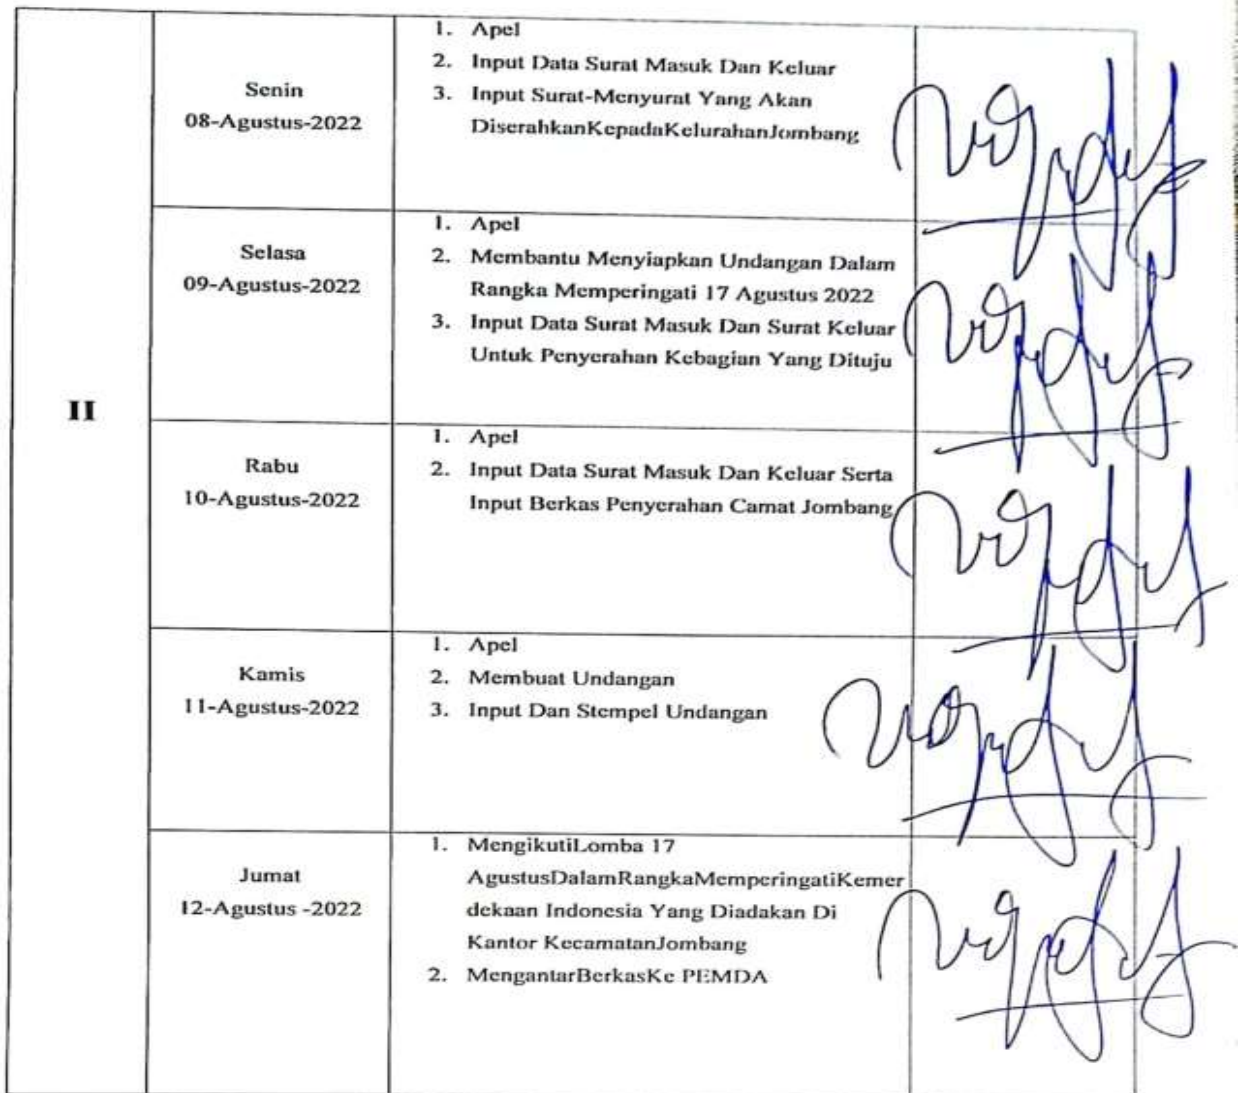 II
Senin
08-Agustus-2022
1. Apel
2. Input Data Surat Masuk Dan Keluar
3. Input Surat-Menyurat Yang Akan
DiserahkanKepadaKelurahanJombang
Selasa
09-Agustus-2022
1. Apel
2. Membantu Menyiapkan Undangan Dalam
Rangka Memperingati 17 Agustus 2022
3. Input Data Surat Masuk Dan Surat Keluar
Untuk Penyerahan Kebagian Yang Dituju
Rabu
10-Agustus-2022
1. Apel
2. Input Data Surat Masuk Dan Keluar Serta
Input Berkas Penyerahan Camat Jombang
Kamis
11-Agustus-2022
1. Apel
2. Membuat Undangan
3. Input Dan Stempel Undangan
Jumat
12-Agustus -2022
1. MengikutiLomba 17
AgustusDalamRangkaMemperingatiKemer
dekaan Indonesia Yang Diadakan Di
Kantor KecamatanJombang
2. MengantarBerkasKe PEMDA